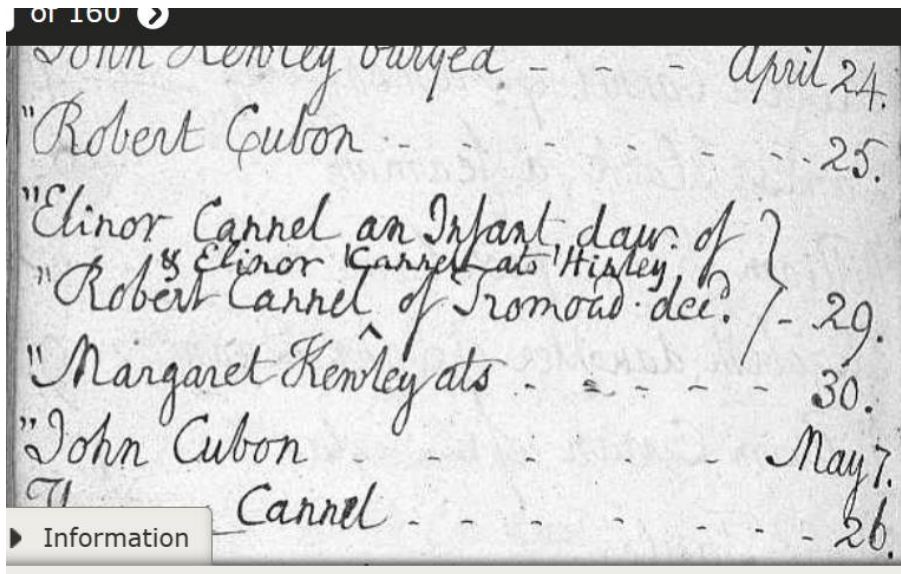 of 160
John Kewley buryed - - - April 24.
"Robert Cubon - - - - - - - 25.
"Elinor Cannel an Infant dawr. of
& Elinor Cannel ats
"Robert Cannel of Tromoad decd. } - 29.
"Margaret Kewley ats - - - - - 30.
"John Cubon - - - - May 7.
Cannel - - - - - - 26.
Information